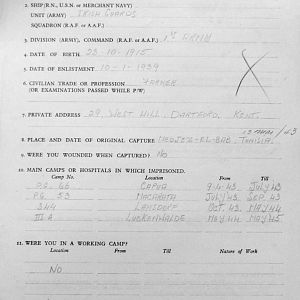 2. SHIP (R.N., U.S.N. OR MERCHANT NAVY)
UNIT (ARMY) IRISH GUARDS
SQUADRON (R.A.F. or A.A.F.)
3. DIVISION (ARMY), COMMAND (R.A.F. or A.A.F.) 1ST ARMY
4. DATE OF BIRTH 23-10-1915
5. DATE OF ENLISTMENT 10-1-1939
6. CIVILIAN TRADE OR PROFESSION FARMER
(OR EXAMINATIONS PASSED WHILE P/W)
7. PRIVATE ADDRESS 29, WEST HILL, DARTFORD, KENT.
8. PLACE AND DATE OF ORIGINAL CAPTURE MEDJEZ-EL-BAB, TUNISIA.
9. WERE YOU WOUNDED WHEN CAPTURED? NO
10. MAIN CAMPS OR HOSPITALS IN WHICH IMPRISONED.
Camp No. Location From Till
P.G. 66 CAPUA 9-4-43 JULY 43
P.G. 53 MACERATA JULY 43 SEP. 43
344 LAMSDORF OCT 43 MAY 44
III A LUCKENWALDE MAY 44 MAY 45
11. WERE YOU IN A WORKING CAMP?
Location From Till Nature of Work
NO